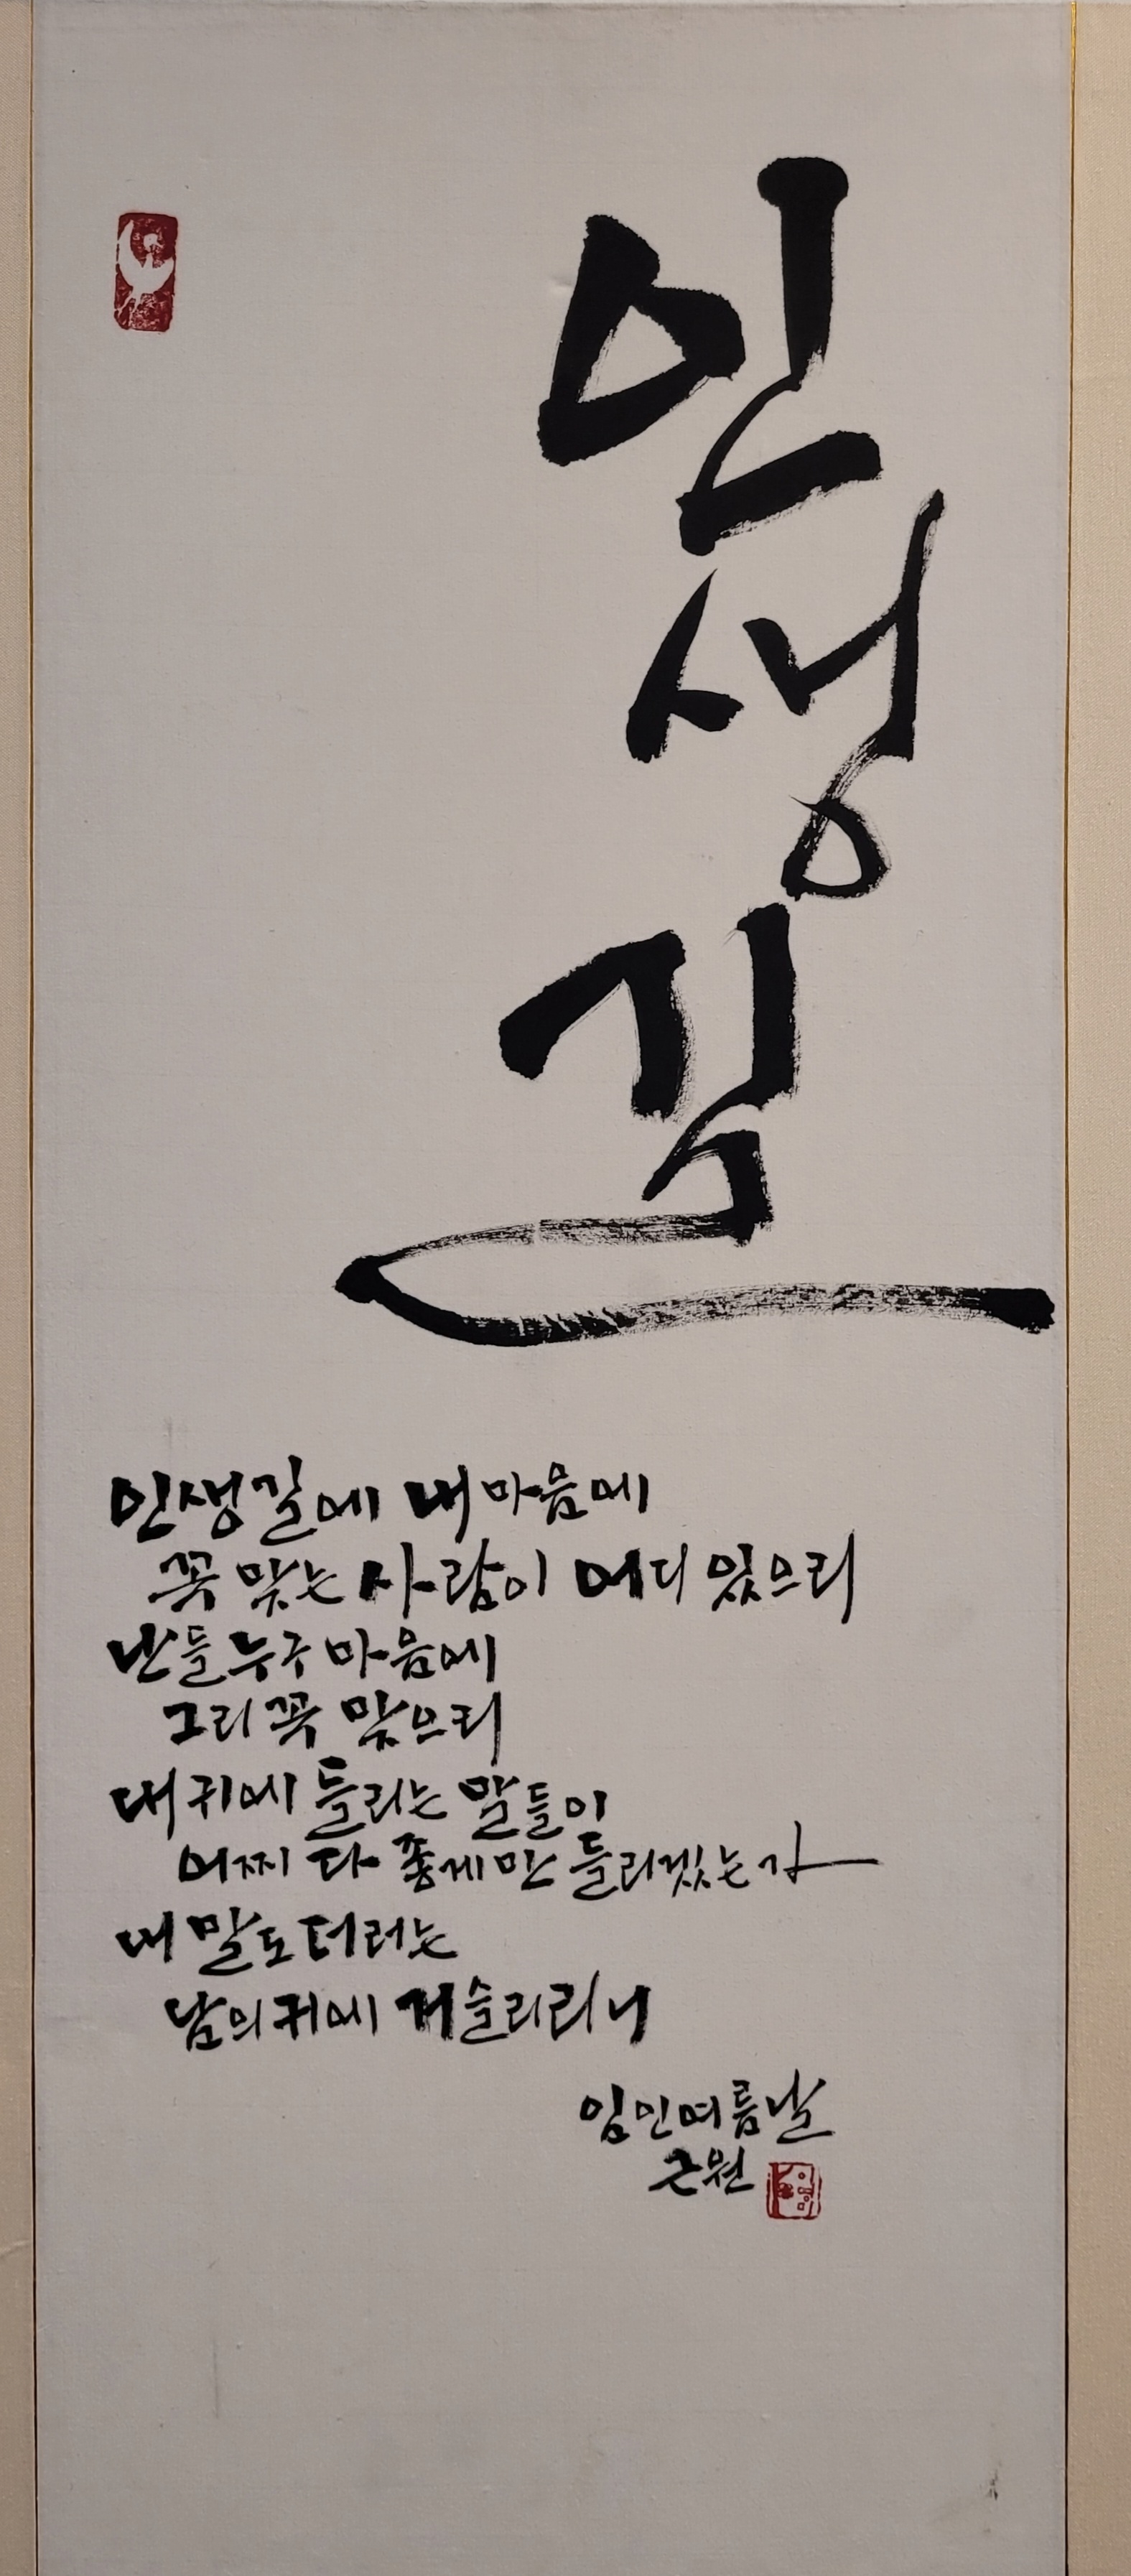 인생길
인생길에 내 마음에
꼭 맞는 사람이 어디 있으리
난들 누구 마음에
그리 꼭 맞으리
내 귀에 들리는 말들이
어찌 다 좋게만 들리겠는가
내 말도 더러는
남의 귀에 거슬리리니
임인여름날
근원